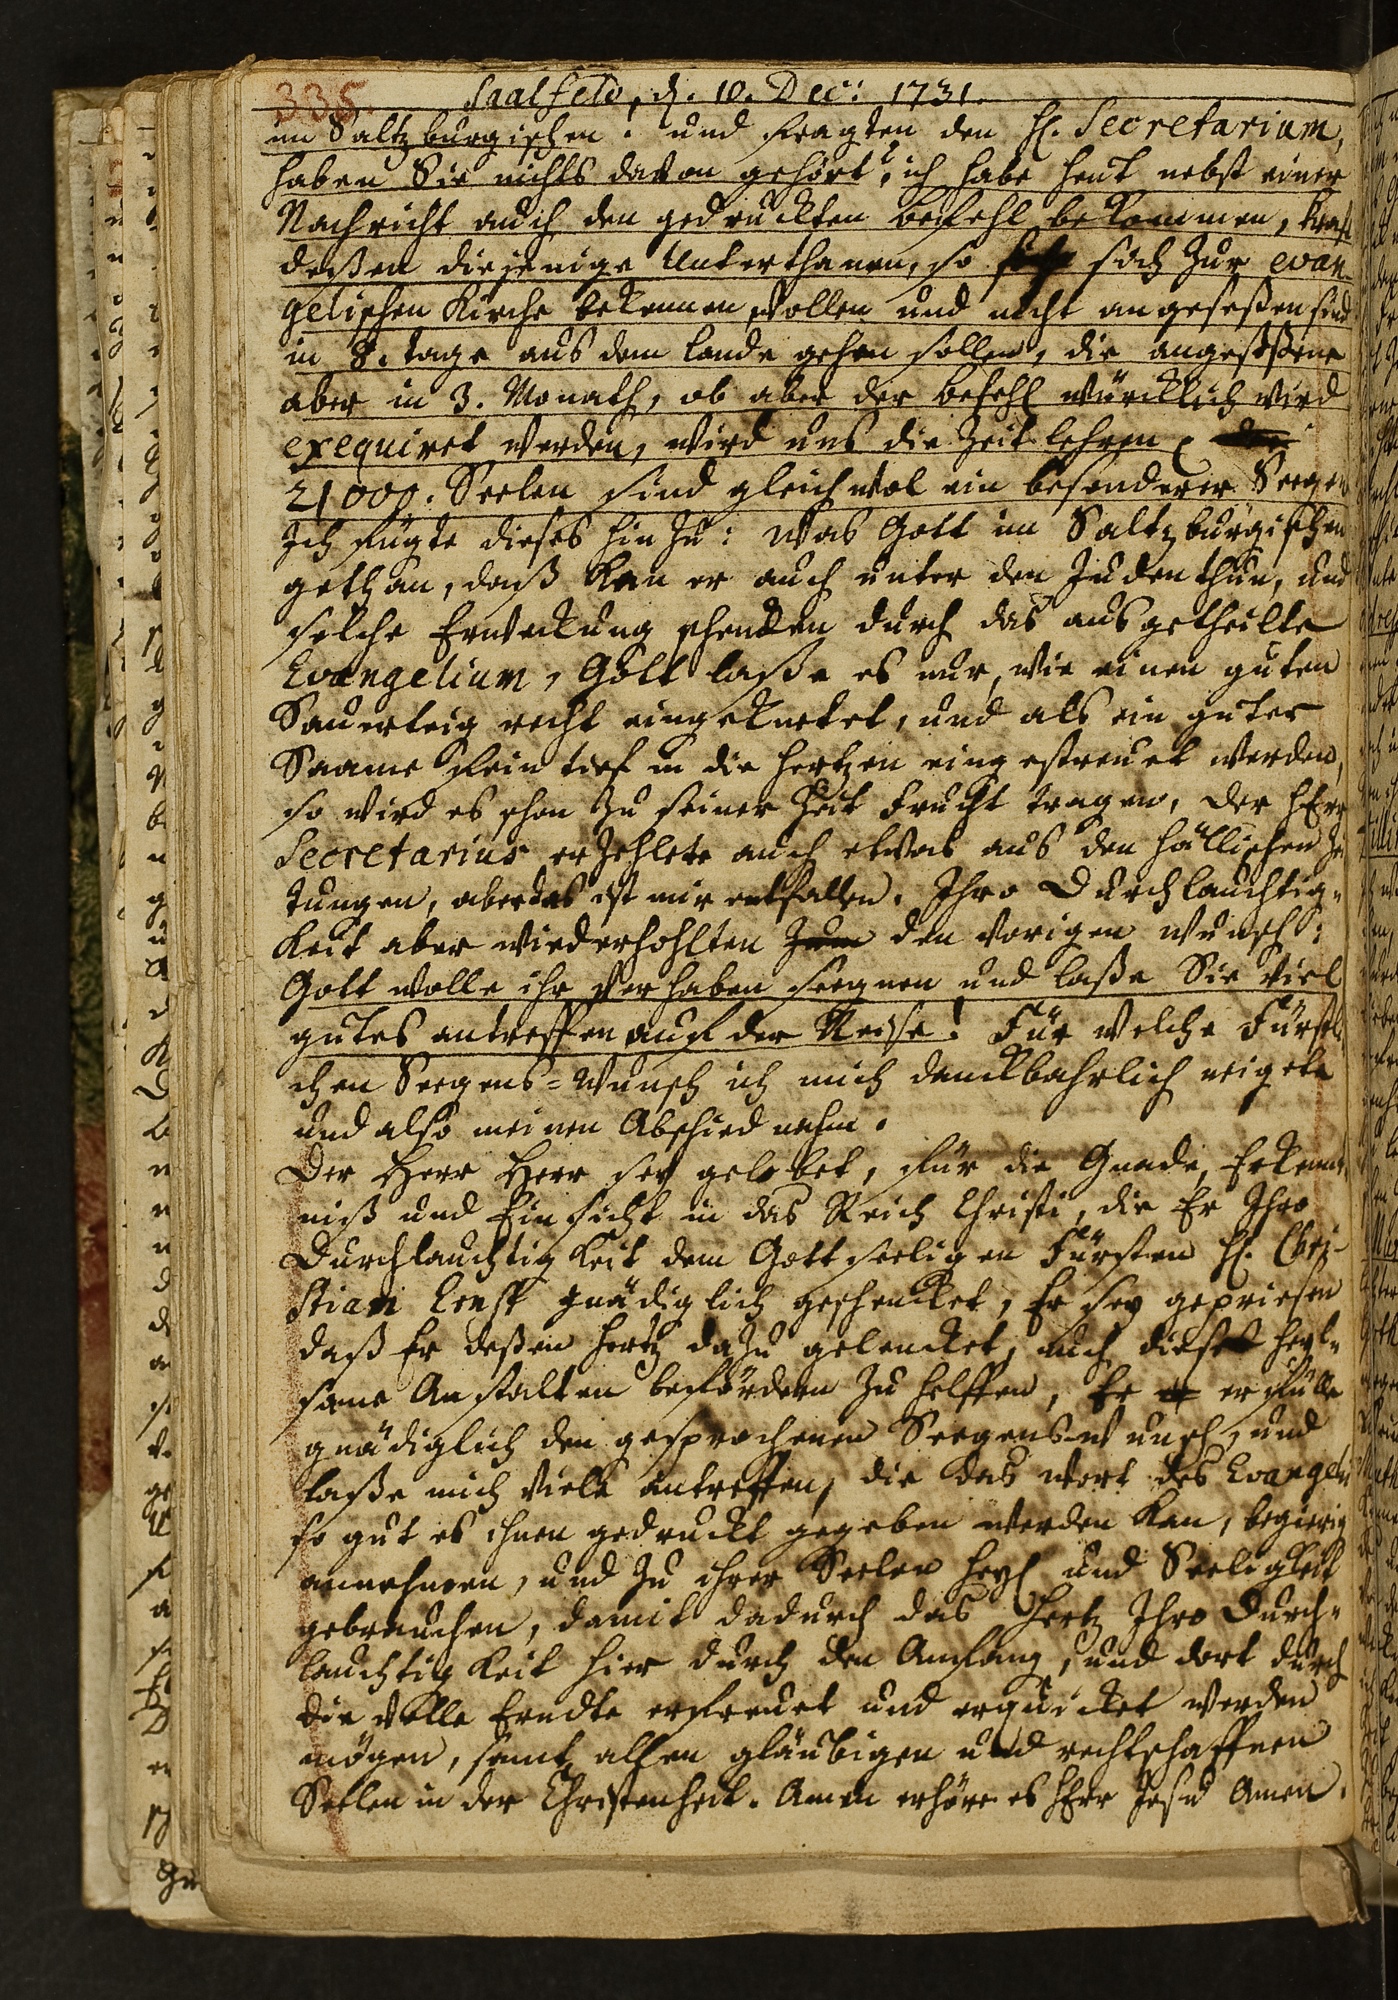 335.
Saalfeld, d. 10. Dec: 1731.
im Saltzburgischen. und fragten den H. Secretarium,
haben Sie nichts davon gehört? ich habe heut nebst einer
Nachricht auch den gedruckten befehl bekommen, kraft
deßen diejenige Unterthanen, so sich zur evan-
gelischen Kirche bekennen wollen und nicht angeseßen sind
in 8. tage aus dem lande gehen sollen, die angeseßene
aber in 3. Monath, ob aber der befehl würcklich wird
exequiret werden, wird uns die Zeit lehren,
21000. Seelen sind gleichwol ein besonderer Seegen
Ich fügte dieses hinzu: was Gott im Saltzburgischen
gethan, daß kan er auch unter den Juden thun, und
solche Erweckung schencken durch das ausgetheilte
Evangelium, Gott laße es nur, wie einen guten
Sauerteig recht eingeknetet, und als ein guter
Saame fein tief in die hertzen eingestreuet werden,
so wird es schon zu seiner Zeit Frucht tragen, der HErr
Secretarius erzehlete auch etwas aus den hällischen Zei
tungen, aber das ist mir entfallen. Ihro Durchlauchtig-
keit aber wiederhohlten den vorigen wunsch:
Gott wolle ihr vorhaben seegnen und laße Sie viel
gutes antreffen auf der Reise! Für welche Fürstl
chen Seegens-wunsch ich mich danckbahrlich neigete
und also meinen Abschied nahm.
Der Herr Herr sey gelobet, für die Gnade, Erkennt
niß und Einsicht in das Reich Christi, die Er Ihro
Durchlauchtigkeit dem Gottseeligen Fürsten H. Chri-
stian Ernst gnädiglich geschencket, Er sey gepriesen
daß Er deßen hertz dazu gelencket, auch diese heyl-
same Anstalten befördern zu helffen, Er erfülle
gnädiglich den gesprochenen Seegenswunsch, und
laße mich viele antreffen, die das wort des Evangelii
so gut es ihnen gedruckt gegeben werden kan, begierig
annehmen, und zu ihrer Seelen heyl und Seeligkeit
gebrauchen, damit dadurch das hertz Ihro Durch-
lauchtigkeit hier durch den Anfang, und dort durch
die volle Erndte erfreuet und erquicket werden
mögen, samt allen gläubigen und rechtschaffnen
Seelen in der Christenheit. Amen erhöre es HErr Jesu Amen.